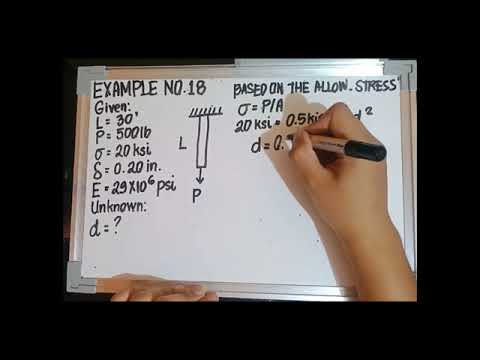 EXAMPLE NO.18
Given:
L = 30'
P = 500lb
σ = 20 ksi
δ = 0.20 in.
E = 29X10⁶psi
Unknown:
d = ?
L
P
BASED ON THE ALLOW. STRESS
σ = P/A
20 ksi = 0.5ki d²
d = 0.